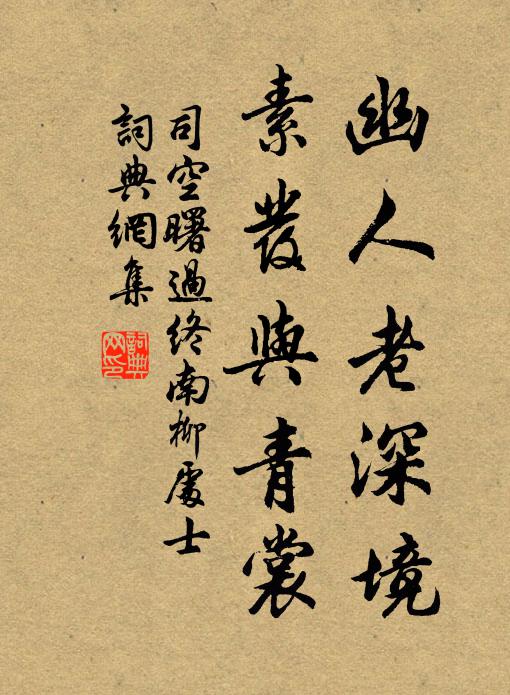 幽人老深境
素發與青裳
司空曙過終南柳處士
詞典網集
詞典
网印